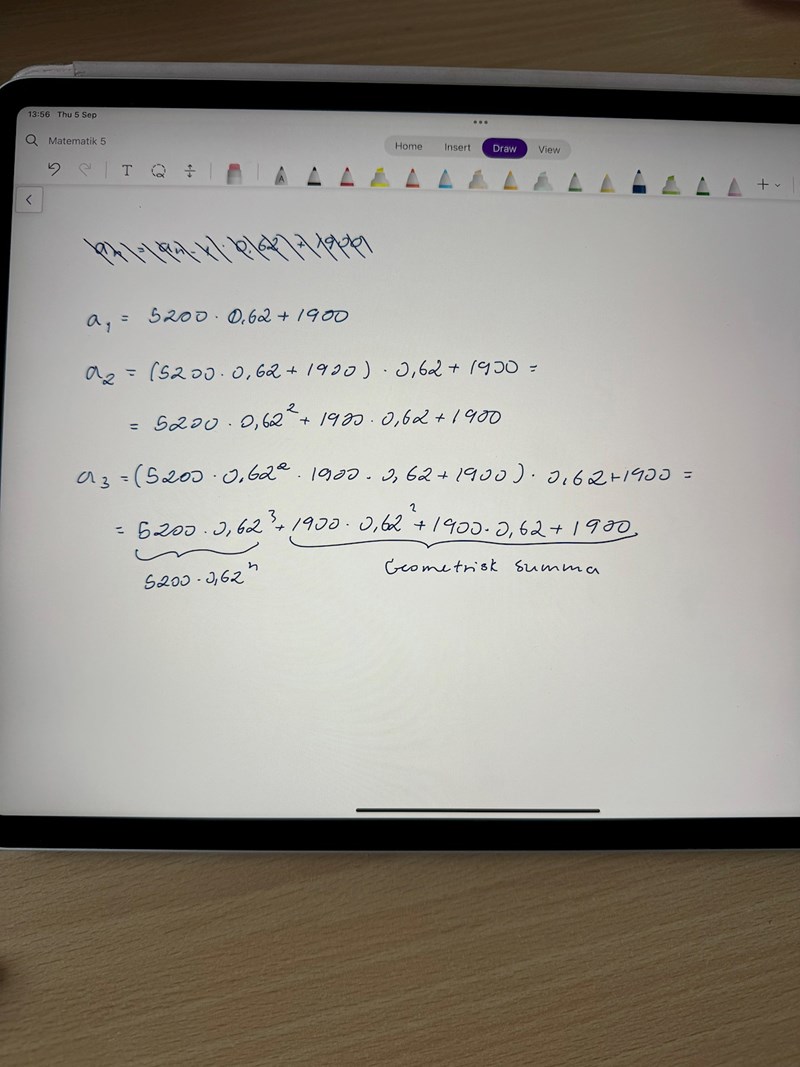 13:56 Thu 5 Sep
Matematik 5
Home Insert Draw View
T
A
a₁ = 5200 · 0,62 + 1900
a₂ = (5200 · 0,62 + 1900) · 0,62 + 1900 =
= 5200 · 0,62² + 1900 · 0,62 + 1900
a₃ = (5200 · 0,62² · 1900 · 0,62 + 1900) · 0,62 + 1900 =
= 5200 · 0,62³ + 1900 · 0,62² + 1900 · 0,62 + 1900
5200 · 0,62ⁿ Geometrisk summa